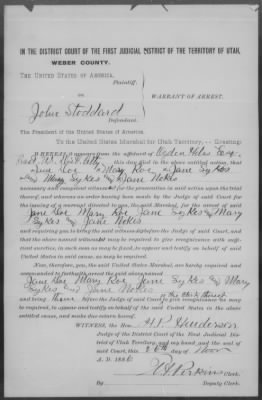 IN THE DISTRICT COURT OF THE FIRST JUDICIAL DISTRICT OF THE TERRITORY OF UTAH,
WEBER COUNTY.
THE UNITED STATES OF AMERICA,
Plaintiff,
vs
WARRANT OF ARREST.
John Stoddard
Defendant.
The President of the United States of America.
To the United States Marshal for Utah Territory. Greeting:
WHEREAS, it appears from the affidavit of Ogden Hiles Esq
Asst U.S. Atty this day filed in the above entitled action, that
Jane Doe Mary Roe Jane Sykes
Mary Sykes Jane Nokes
necessary and competent witnesses for the prosecution in said action upon the trial
thereof, and whereas an order having been made by the Judge of said Court for
the issuing of a warrant directed to you, the said Marshal, for the arrest of said
Jane Doe Mary Roe Jane Sykes Mary
Sykes Jane Nokes
and requiring you to bring the said witness before the Judge of said Court, and
that the above named witness may be required to give recognizance with
surities, in such sum as may be fixed, to appear and testify on behalf of said
United States in said cause, as may be required.
Now, therefore, you, the said United States Marshal, are hereby required and
commanded to forthwith arrest the said above named
Jane Doe Mary Roe Jane Sykes Mary
Sykes Jane Nokes or the clerk thereof
and bring them before the Judge of said Court to give recognizance as may be
required, to appear and testify on behalf of the United States in the above entitled
cause, and make due return hereof.
WITNESS, the Hon. H.P. Henderson
Judge of the District Court of the First Judicial Dis-
trict of Utah Territory, and my hand, and the seal of
said Court, this 26th day of Nov
A.D. 188
Clerk.
By Deputy Clerk.